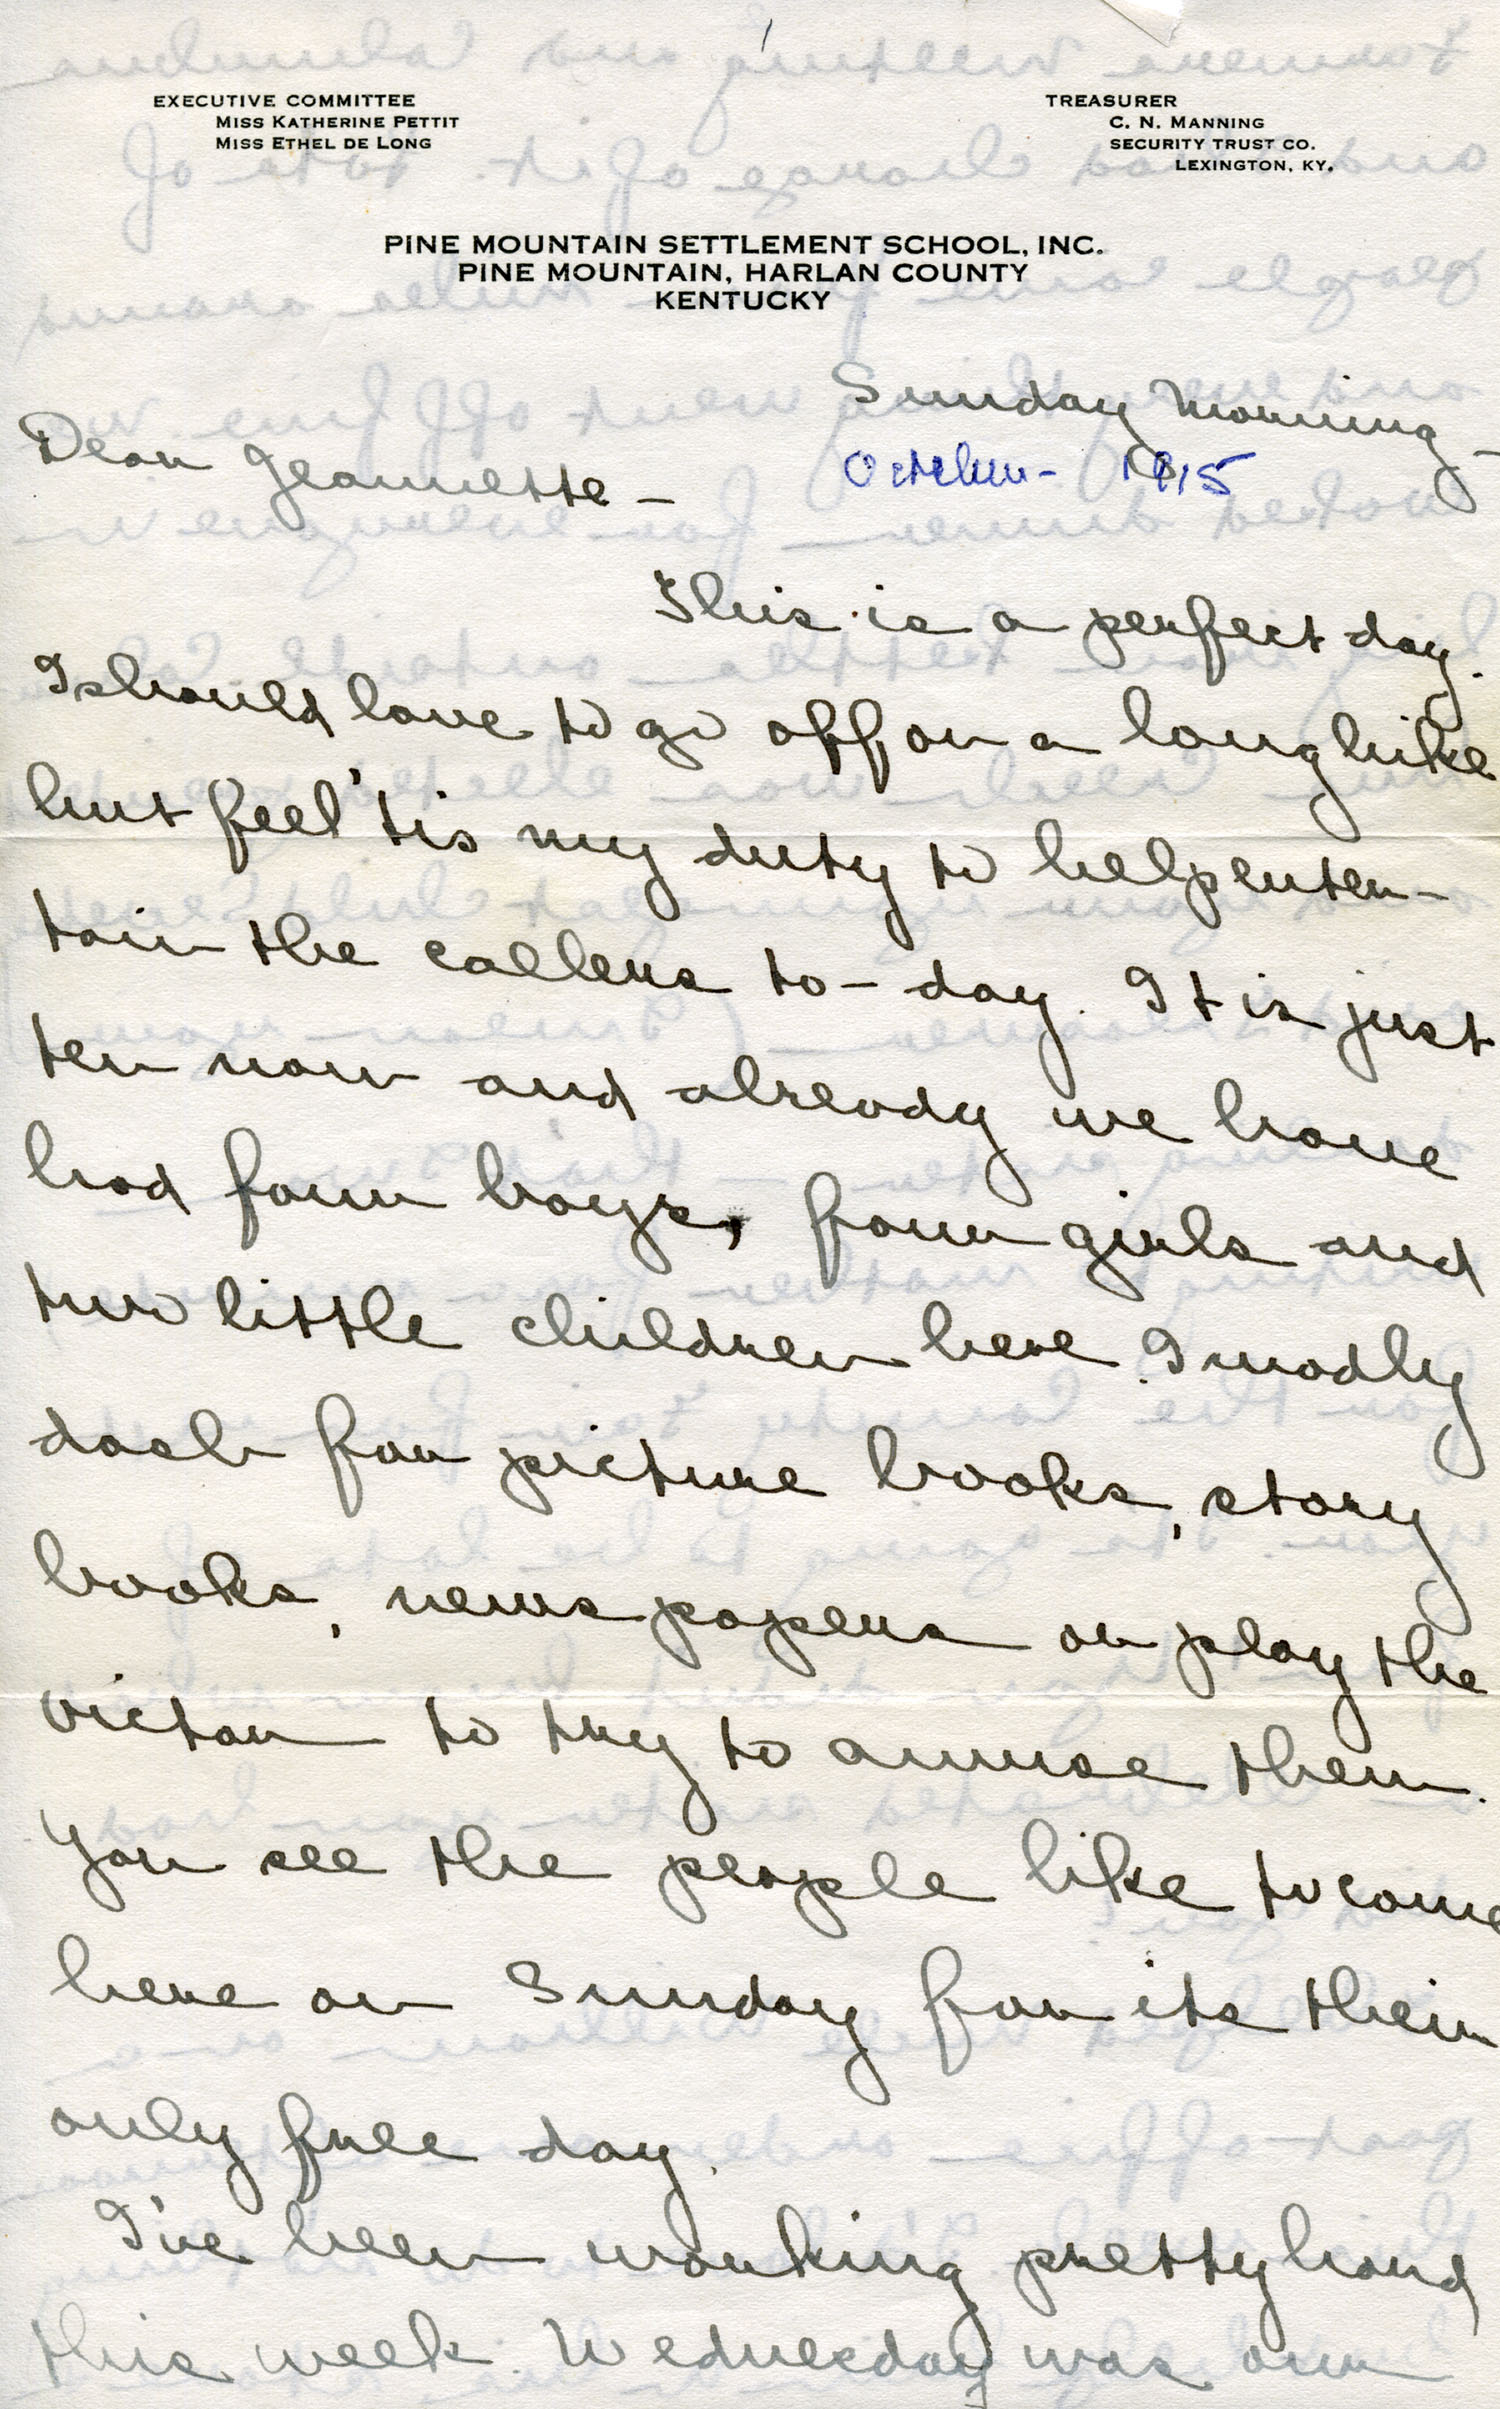 1
EXECUTIVE COMMITTEE
MISS KATHERINE PETTIT
MISS ETHEL DE LONG
TREASURER
C. N. MANNING
SECURITY TRUST CO.
LEXINGTON, KY.
PINE MOUNTAIN SETTLEMENT SCHOOL, INC.
PINE MOUNTAIN, HARLAN COUNTY
KENTUCKY
Sunday Morning –
October – 1915
Dear Jeannette –
This is a perfect day.
I should love to go off on a long hike
but feel 'tis my duty to help enter-
tain the callers to-day. It is just
ten now and already we have
had four boys, four girls and
two little children here. I madly
dash for picture books, story
books, newspapers or play the
victor to try to amuse them.
You see the people like to come
here on Sunday for its their
only free day.
I've been working pretty hard
this week. Wednesday was our